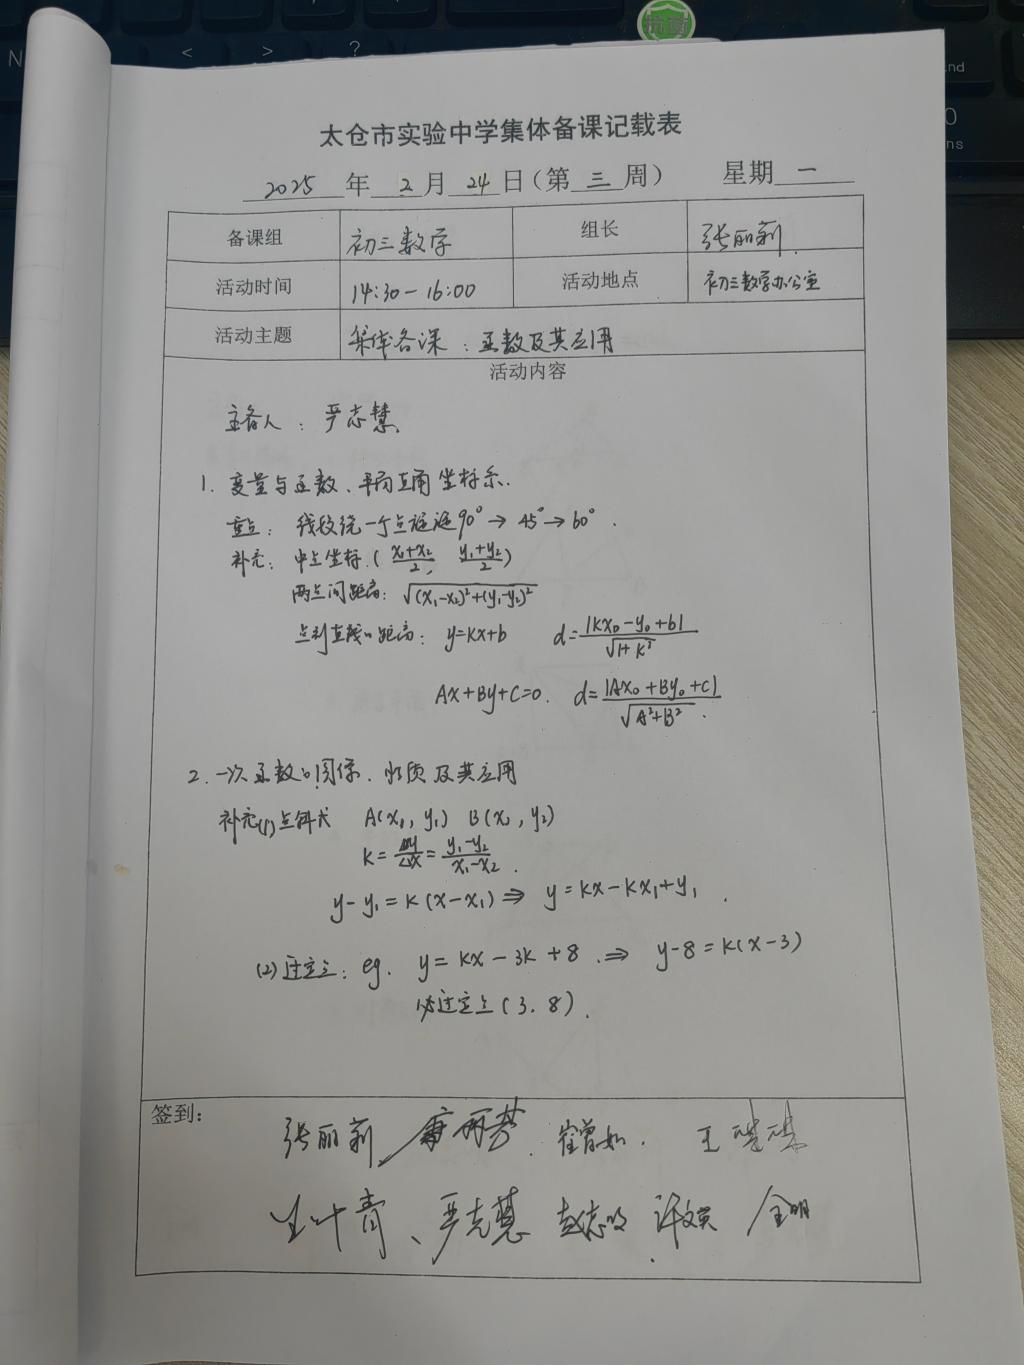 太仓市实验中学集体备课记载表
2025 年 2 月 24 日(第 三 周) 星期 一
备课组 初三数学 组长 张丽莉
活动时间 14:30-16:00 活动地点 初三数学办公室
活动主题 集体备课:函数及其应用
活动内容
主备人:严志慧
1. 变量与函数、平面直角坐标系.
重点:线段绕一个点旋转90°→45°→60°.
补充:中点坐标.(x₁+x₂/2, y₁+y₂/2)
两点间距离:√(x₁-x₂)²+(y₁-y₂)²
点到直线的距离:y=kx+b d=|kx₀-y₀+b|/√1+k²
Ax+By+C=0. d=|Ax₀+By₀+C|/√A²+B².
2. 一次函数的图像.性质及其应用
补充(1)点斜式 A(x₁,y₁) B(x₂,y₂)
k=Δy/Δx=y₁-y₂/x₁-x₂.
y-y₁=k(x-x₁)⇒ y=kx-kx₁+y₁.
(2)过定点:eg. y=kx-3k+8.⇒ y-8=k(x-3)
必过定点(3.8).
签到:
张丽莉
严志慧 金明